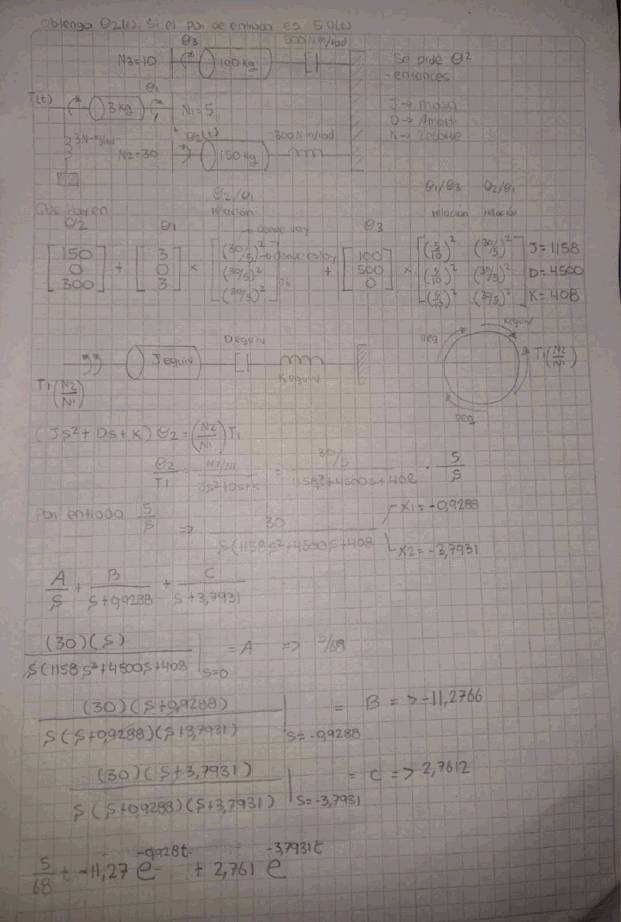 Obtenga θ2(t), Si el Par de entrada es 5 U(t)
θ3
500 N m/rad
N3=10
100 kg
Se pide θ2
entonces
T(t)
θ1
3 kg
N1=5
J → masa
D → Amorti
K → resorte
3 N-m/rad
θ2(t)
300 N m/rad
N2=30
150 kg
θ2/θ1
θ1/θ3 θ2/θ1
relación
relación relación
θ2
θ1
→ donde voy
→ donde estoy
θ3
[150 0 300] + [3 0 3] × [(30/5)² (30/5)² (30/5)²] + [100 500 0] × [(5/10)² (30/5)² (5/10)² (30/5)² (5/10)² (30/5)²]
J=1158
D=4500
K=408
Dequiv
Jequiv
Kequiv
T1(N2/N1)
T1(N2/N1)
(Js²+Ds+K) θ2 = (N2/N1) T1
θ2/T1 = (N2/N1)/(Js²+Ds+K) = (30/5)/(1158s²+4500s+408) · 5/s
Par entrada 5/s => 30/(s(1158s²+4500s+408))
X1=-0,9288
X2=-3,7931
A/s + B/(s+0,9288) + C/(s+3,7931)
(30)(s)/(s(1158s²+4500s+408)) |s=0 = A => 5/68
(30)(s+0,9288)/(s(s+0,9288)(s+3,7931)) |s=-0,9288 = B => -11,2766
(30)(s+3,7931)/(s(s+0,9288)(s+3,7931)) |s=-3,7931 = C => 2,7612
5/68 + -11,27 e^-0,928t + 2,761 e^-3,7931t